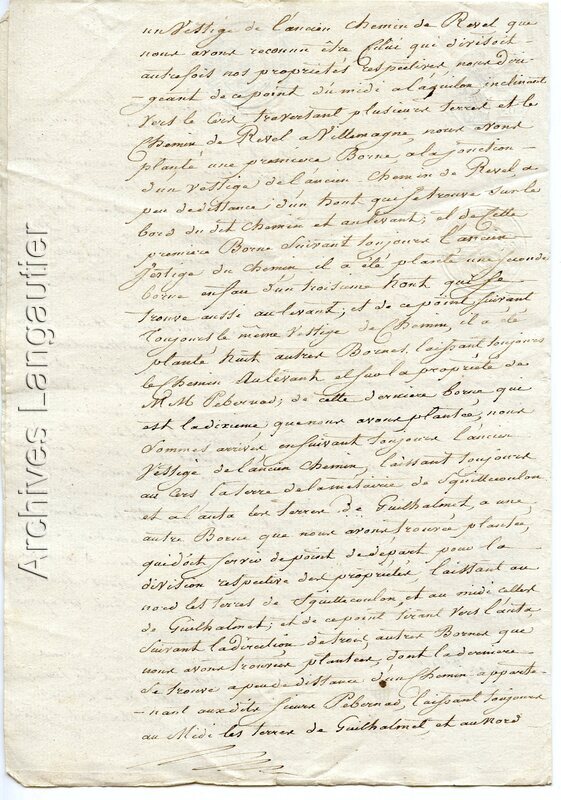 un Vestige de l'ancien chemin de Revel que
nous avons reconnu être Celui qui divisoit
autrefois nos propriétés respectives nous diri
-geant de ce point du midi a l'aquilon, inclinant
vers le Cers traversant plusieurs terres et le
Chemin de Revel a Villemagne, nous avons
planté une premiere Borne, a la jonction
d'un Vestige de l'ancien Chemin de Revel a
peu de distance d'un hout qui se trouve sur le
bord du dit Chemin et au levant; et de Cette
premiere Borne Suivant toujours l'ancien
Vestige du Chemin il a été planté une seconde
borne en fau d'un troisieme hout qui se
trouve aussi au levant; et de ce point Suivant
toujours le même Vestige de Chemin, il a été
planté huit autres Bornes, laissant toujours
le Chemin Au levant et sur la propriété de
M M Pebernad; de cette derniere borne, que
est la dixieme, que nous avons plantée, nous
Sommes arrivés en suivant toujours l'ancien
Vestige de l'ancien Chemin, laissant toujours
au Cers la terre de la metairie de Squillecoulon
et a l'auta les terres de Guilhalmet, a une
autre Borne que nous avons trouvée plantée,
qui doit servir de point de départ pour la
division respective des propriétés, laissant au
nord les terres de Squillecoulon, et au midi celles
de Guilhalmet; et de ce point tirant vers l'auta,
Suivant la direction de trois autres Bornes que
nous avons trouvées plantées, dont la derniere
Se trouve a peu de distance d'un Chemin apparte
-nant aux dits Sieurs Pebernad, laissant toujours
au Midi les terres de Guilhalmet et au Nord
Archives Langautier